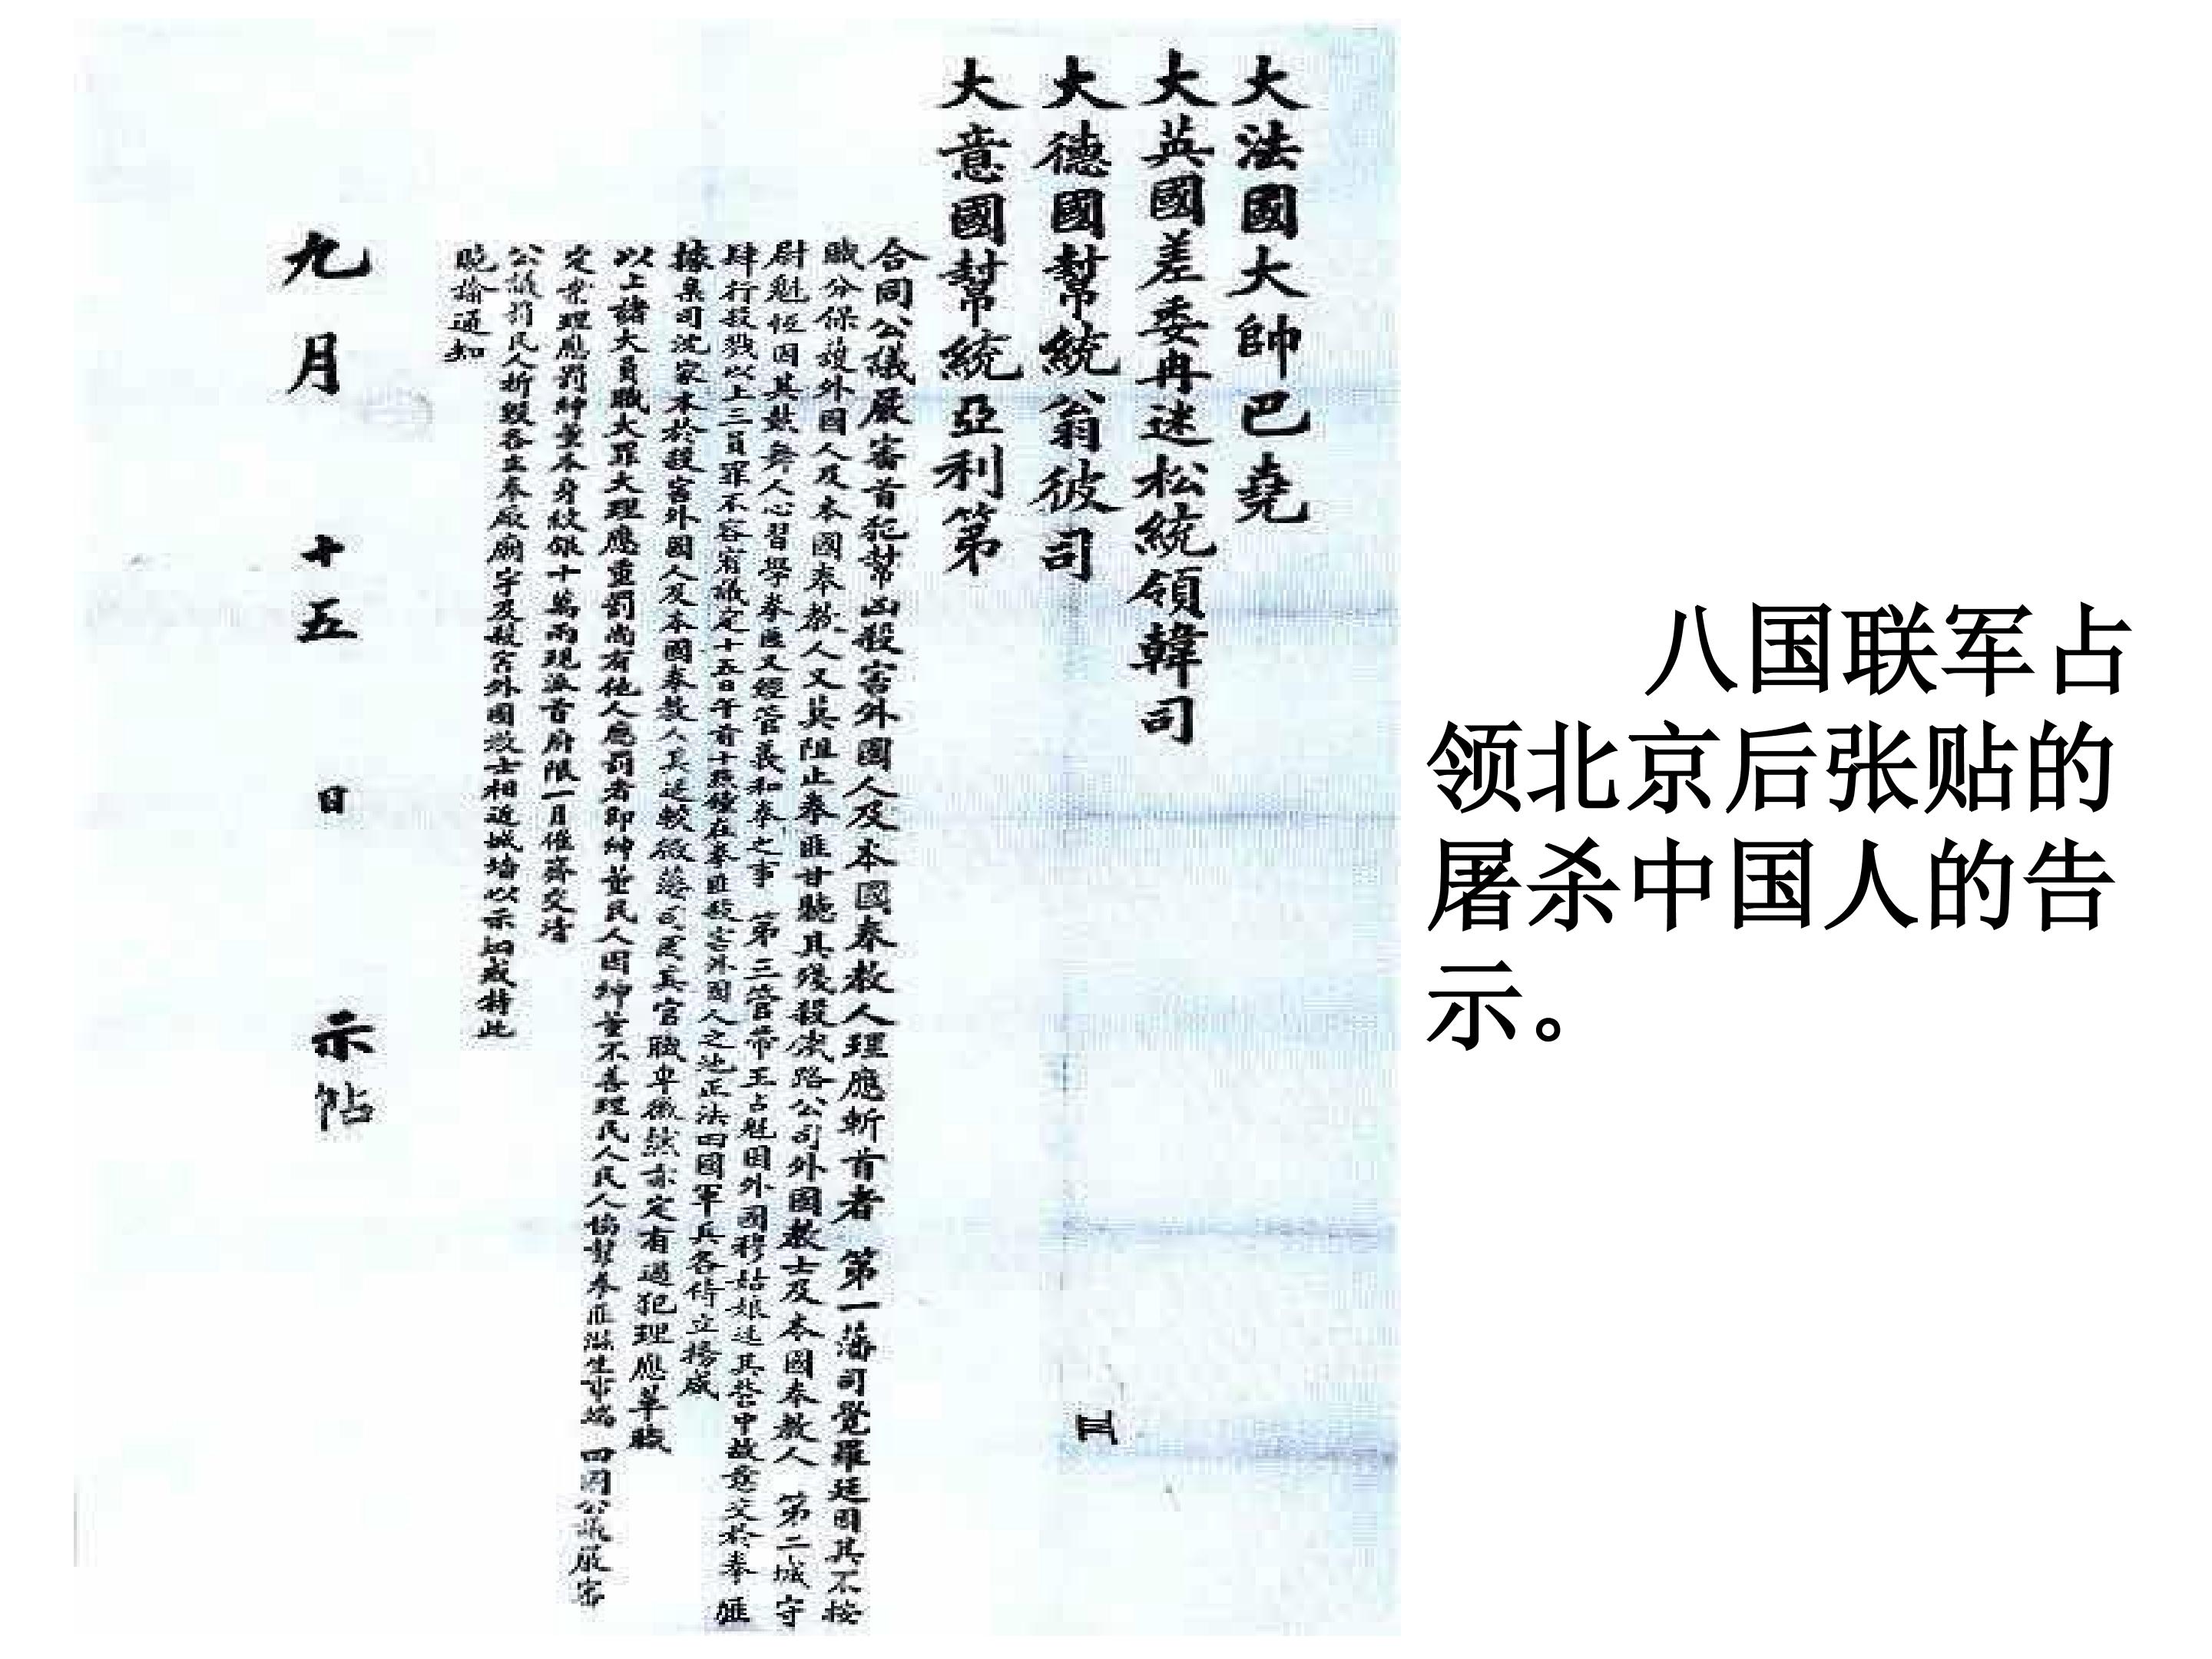 大法國大帥巴堯
大英國差委冉迷松統領韓司
大德國幫統翁彼司
大意國幫統亞利第
合同公議嚴審首犯幫凶殺害外國人及本國奉教人理應斬首者 第一藩司覺羅廷因其不按
職分保護外國人及本國奉教人又其阻止拳匪甘聽其殘殺 路公司外國教士及本國奉教人 第二城守
尉魁恒因其鼓舞人心習學拳匪又經管義和拳之事 第三營帶王占魁因外國穆姑娘送其營中故意交於拳匪
肆行殺戮以上三員罪不容宥議定十五日午前十點鐘在拳匪殺害外國人之地正法四國軍兵各侍立榜威
據臬司沈家本於殺害外國人及本國奉教人其延較微 其官職卑微然亦定有過犯理應革職
以上諸大員職大罪大理應重罰尚有他人應罰者即紳董民人因紳董不善理民人民人協幫拳匪滋生事端 四國公議嚴審
定案理應罰紳董本身紋銀十萬兩現派首府限一月催齊交清
公議罰民人折毀各立拳廠廟宇及殺害外國教士相近城墻以示 戒特此
曉諭通知
九月 十五 日 示帖
八国联军占
领北京后张贴的
屠杀中国人的告
示。